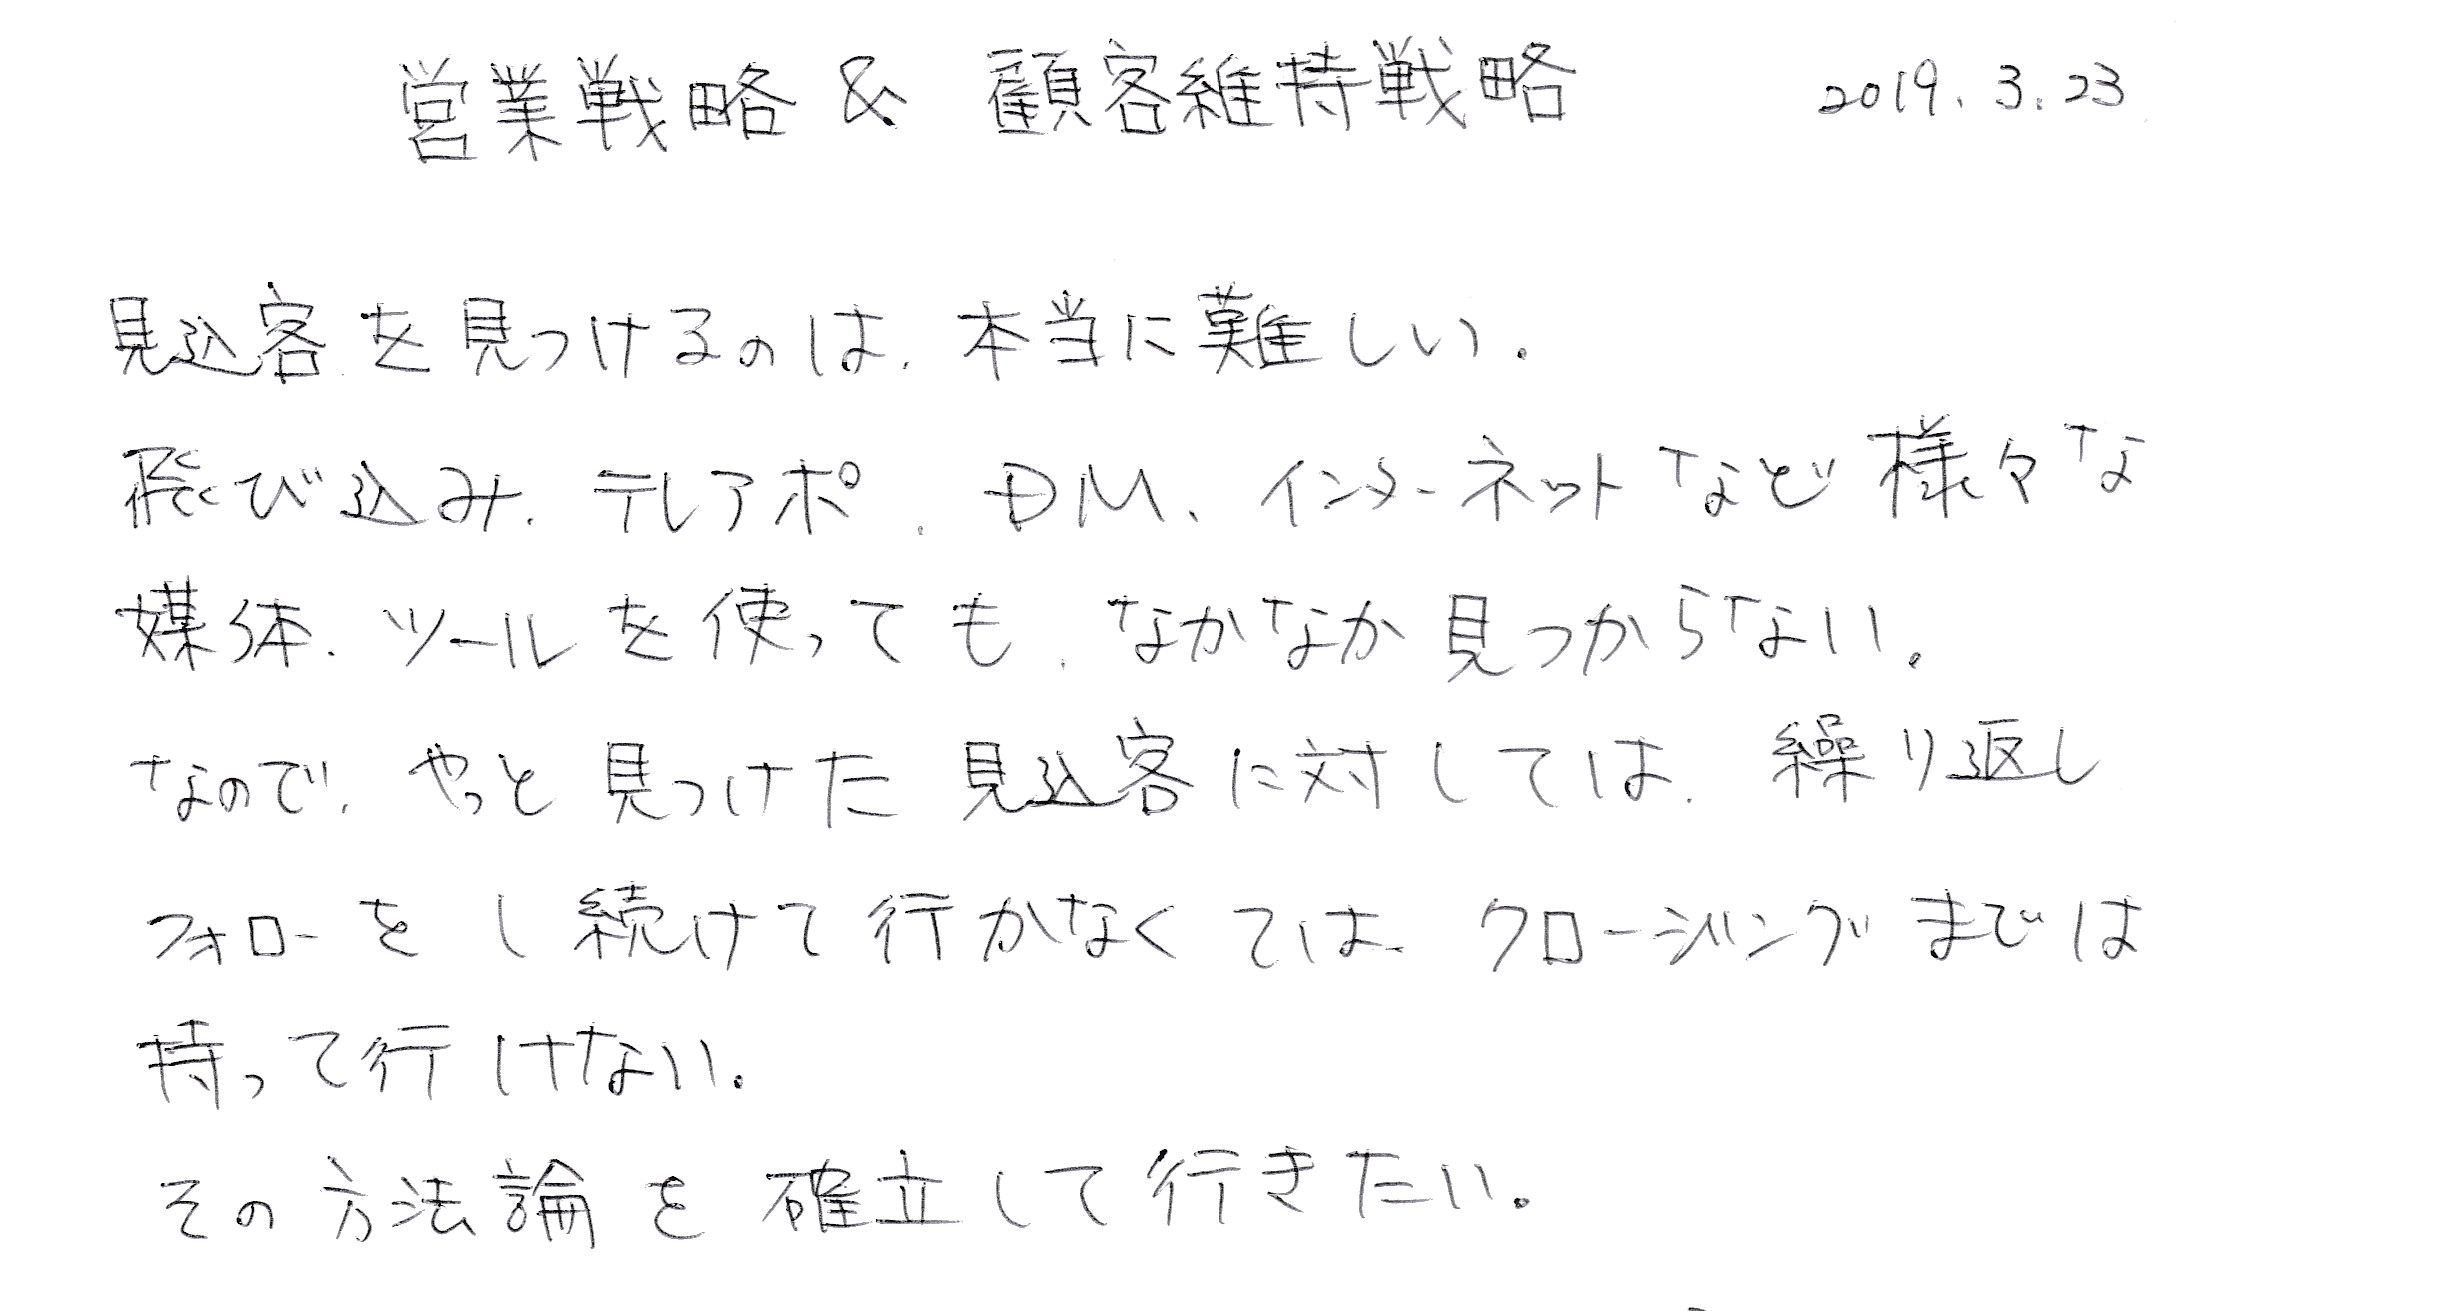 営業戦略 & 顧客維持戦略 2019.3.23
見込客を見つけるのは、本当に難しい。
飛び込み、テレアポ、DM、インターネットなど様々な
媒体、ツールを使っても、なかなか見つからない。
なので、やっと見つけた見込客に対しては、繰り返し
フォローをし続けて行かなくては、クロージングまでは
持って行けない。
その方法論を確立して行きたい。